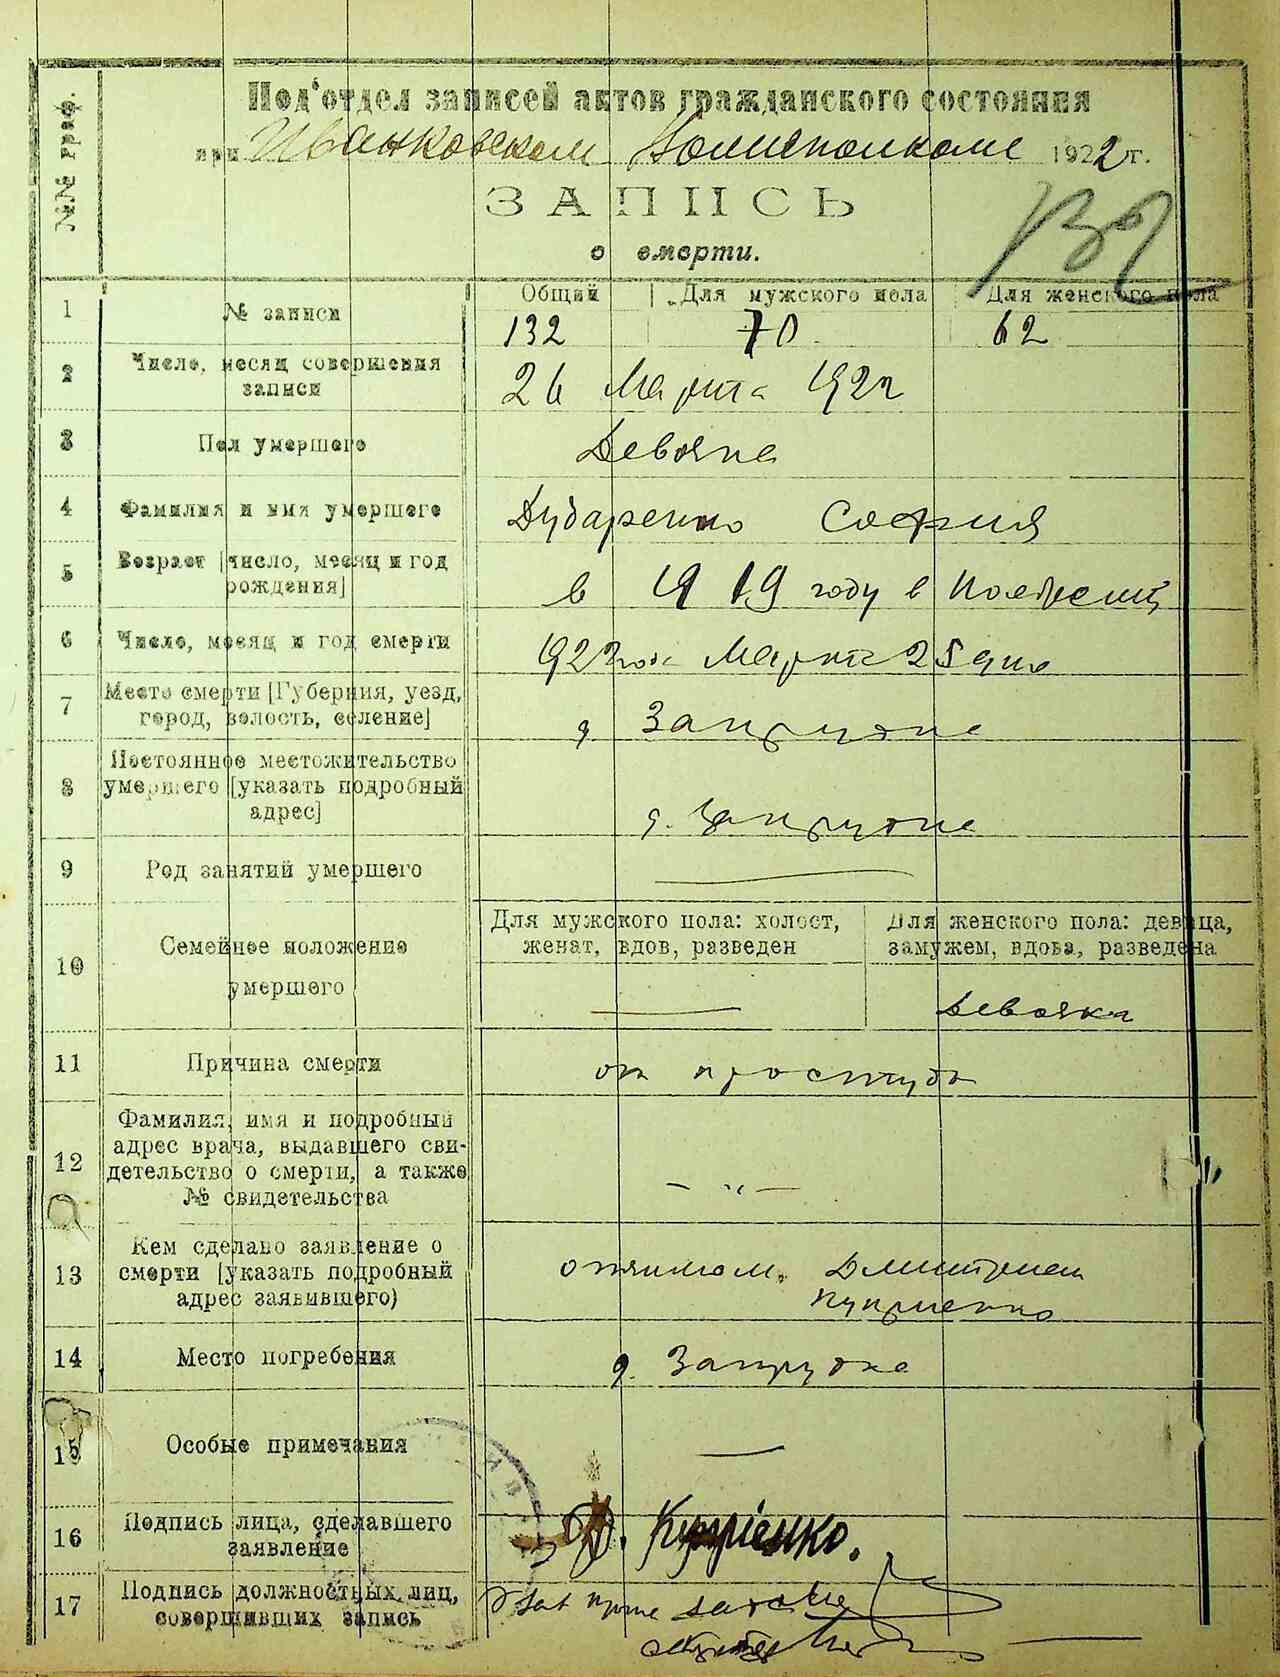 №№ граф.
Под'отдел записей актов гражданского состояния
при Иванковском Волисполкоме 1922 г.
ЗАПИСЬ
о смерти.
132
Общий Для мужского пола Для женского пола
1 № записи 132 70 62
2 Число, месяц совершения
записи 26 Марта 1922
3 Пол умершего Девочка
4 Фамилия и имя умершего Дударенко София
5 Возраст [число, месяц и год
рождения] в 1919 году в
6 Число, месяц и год смерти 1922 года Марта 25 дня
7 Место смерти [Губерния, уезд,
город, волость, селение] д. Запрудка
8 Постоянное местожительство
умершего [указать подробный
адрес] д. Запрудка
9 Род занятий умершего
10 Семейное положение
умершего
Для мужского пола: холост,
женат, вдов, разведен
Для женского пола: девица,
замужем, вдова, разведена
Девочка
11 Причина смерти от простуды
12 Фамилия, имя и подробный
адрес врача, выдавшего сви-
детельство о смерти, а также
№ свидетельства — „ —
13 Кем сделано заявление о
смерти [указать подробный
адрес заявившего) Дмитрием
Куприенко
14 Место погребения д. Запрудка
15 Особые примечания
16 Подпись лица, сделавшего
заявление Д. Купріенко.
17 Подпись должностных лиц,
совершивших запись